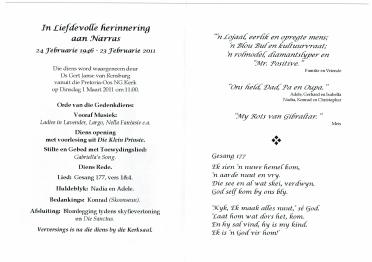 In Liefdevolle herinnering
aan Narras
24 Februarie 1946 - 23 Februarie 2011
Die diens word waargeneem deur
Ds Gert Janse van Rensburg
vanuit die Pretoria-Oos NG Kerk
op Dinsdag 1 Maart 2011 om 11:00.
Orde van die Gedenkdiens:
Vooraf Musiek:
Ladies in Lavender, Largo, Nella Fantasie e.a.
Diens opening
met voorlesing uit Die Klein Prinsie.
Stilte en Gebed met Toewydingslied:
Gabriella's Song.
Diens Rede.
Lied: Gesang 177, vers 1&4.
Huldeblyk: Nadia en Adele.
Bedankings: Konrad (Skoonseun).
Afsluiting: Blomlegging tydens skyfievertoning
en Die Sanctus.
Verversings is na die diens by die Kerksaal.
"n Lojaal, eerlik en opregte mens;
'n Blou Bul en kultuurvraat;
'n rolmodel, diamantslyper en
"Mr. Positive."
Familie en Vriende
"Ons held, Dad, Pa en Oupa."
Adele, Gerhard en Isabella
Nadia, Konrad en Christopher
"My Rots van Gibraltar."
Gesang 177
Ek sien 'n nuwe hemel kom,
'n aarde nuut en vry.
Die see en al wat skei, verdwyn.
God self kom by ons bly.
'Kyk, Ek maak alles nuut,' sê God.
'Laat hom wat dors het, kom.
En hy sal vind, hy is my kind.
Ek is 'n God vir hom!'